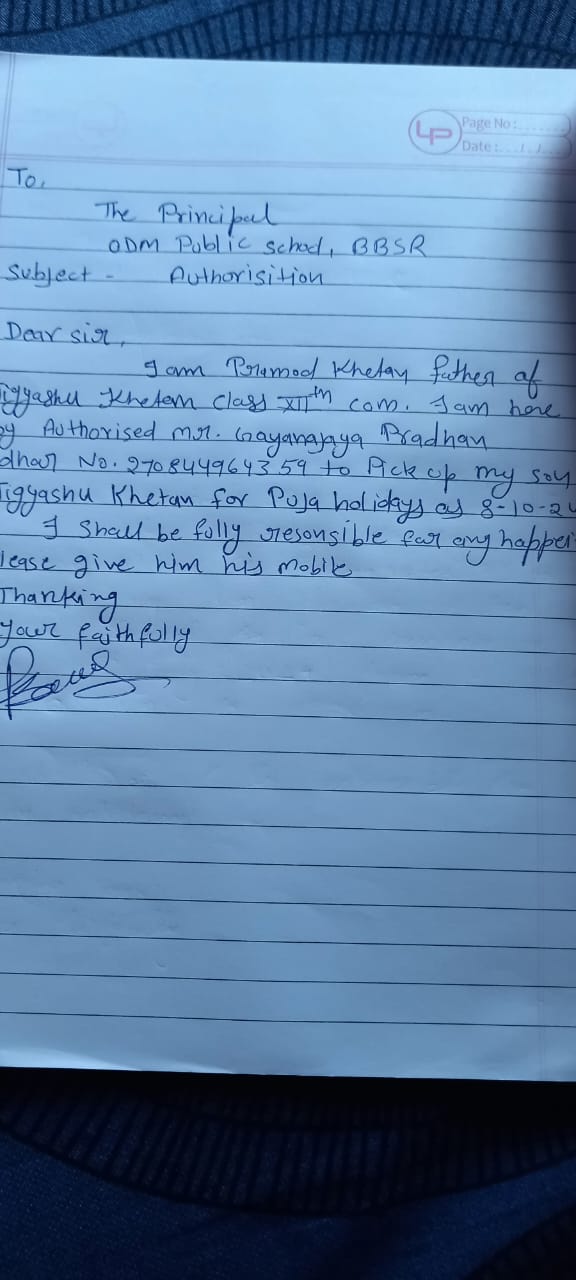 LP
Page No:.......
Date:.../.../...
To,
The Principal
ODM Public school, BBSR
Subject - Authorisition
Dear sir,
I am Pramod Khetan father of
iggyashu Khetan class XIIth com. I am here
by Authorised mr. Gayanajaya Pradhan
dhar No. 270844964359 to Pick up my son
Jigyashu Khetan for Puja holidays as 8-10-24
I shall be fully resonsible far any happen
lease give him his mobile
Thanking
your faithfully